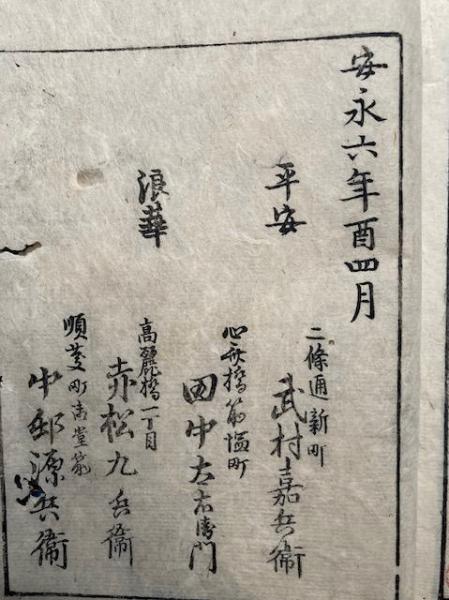 安永六年酉四月
平安
二條通新町
武村嘉兵衛
浪華
心斎橋筋塩町
田中太右衛門
高麗橋一丁目
赤松九兵衛
順慶町御堂筋
中邨源兵衛